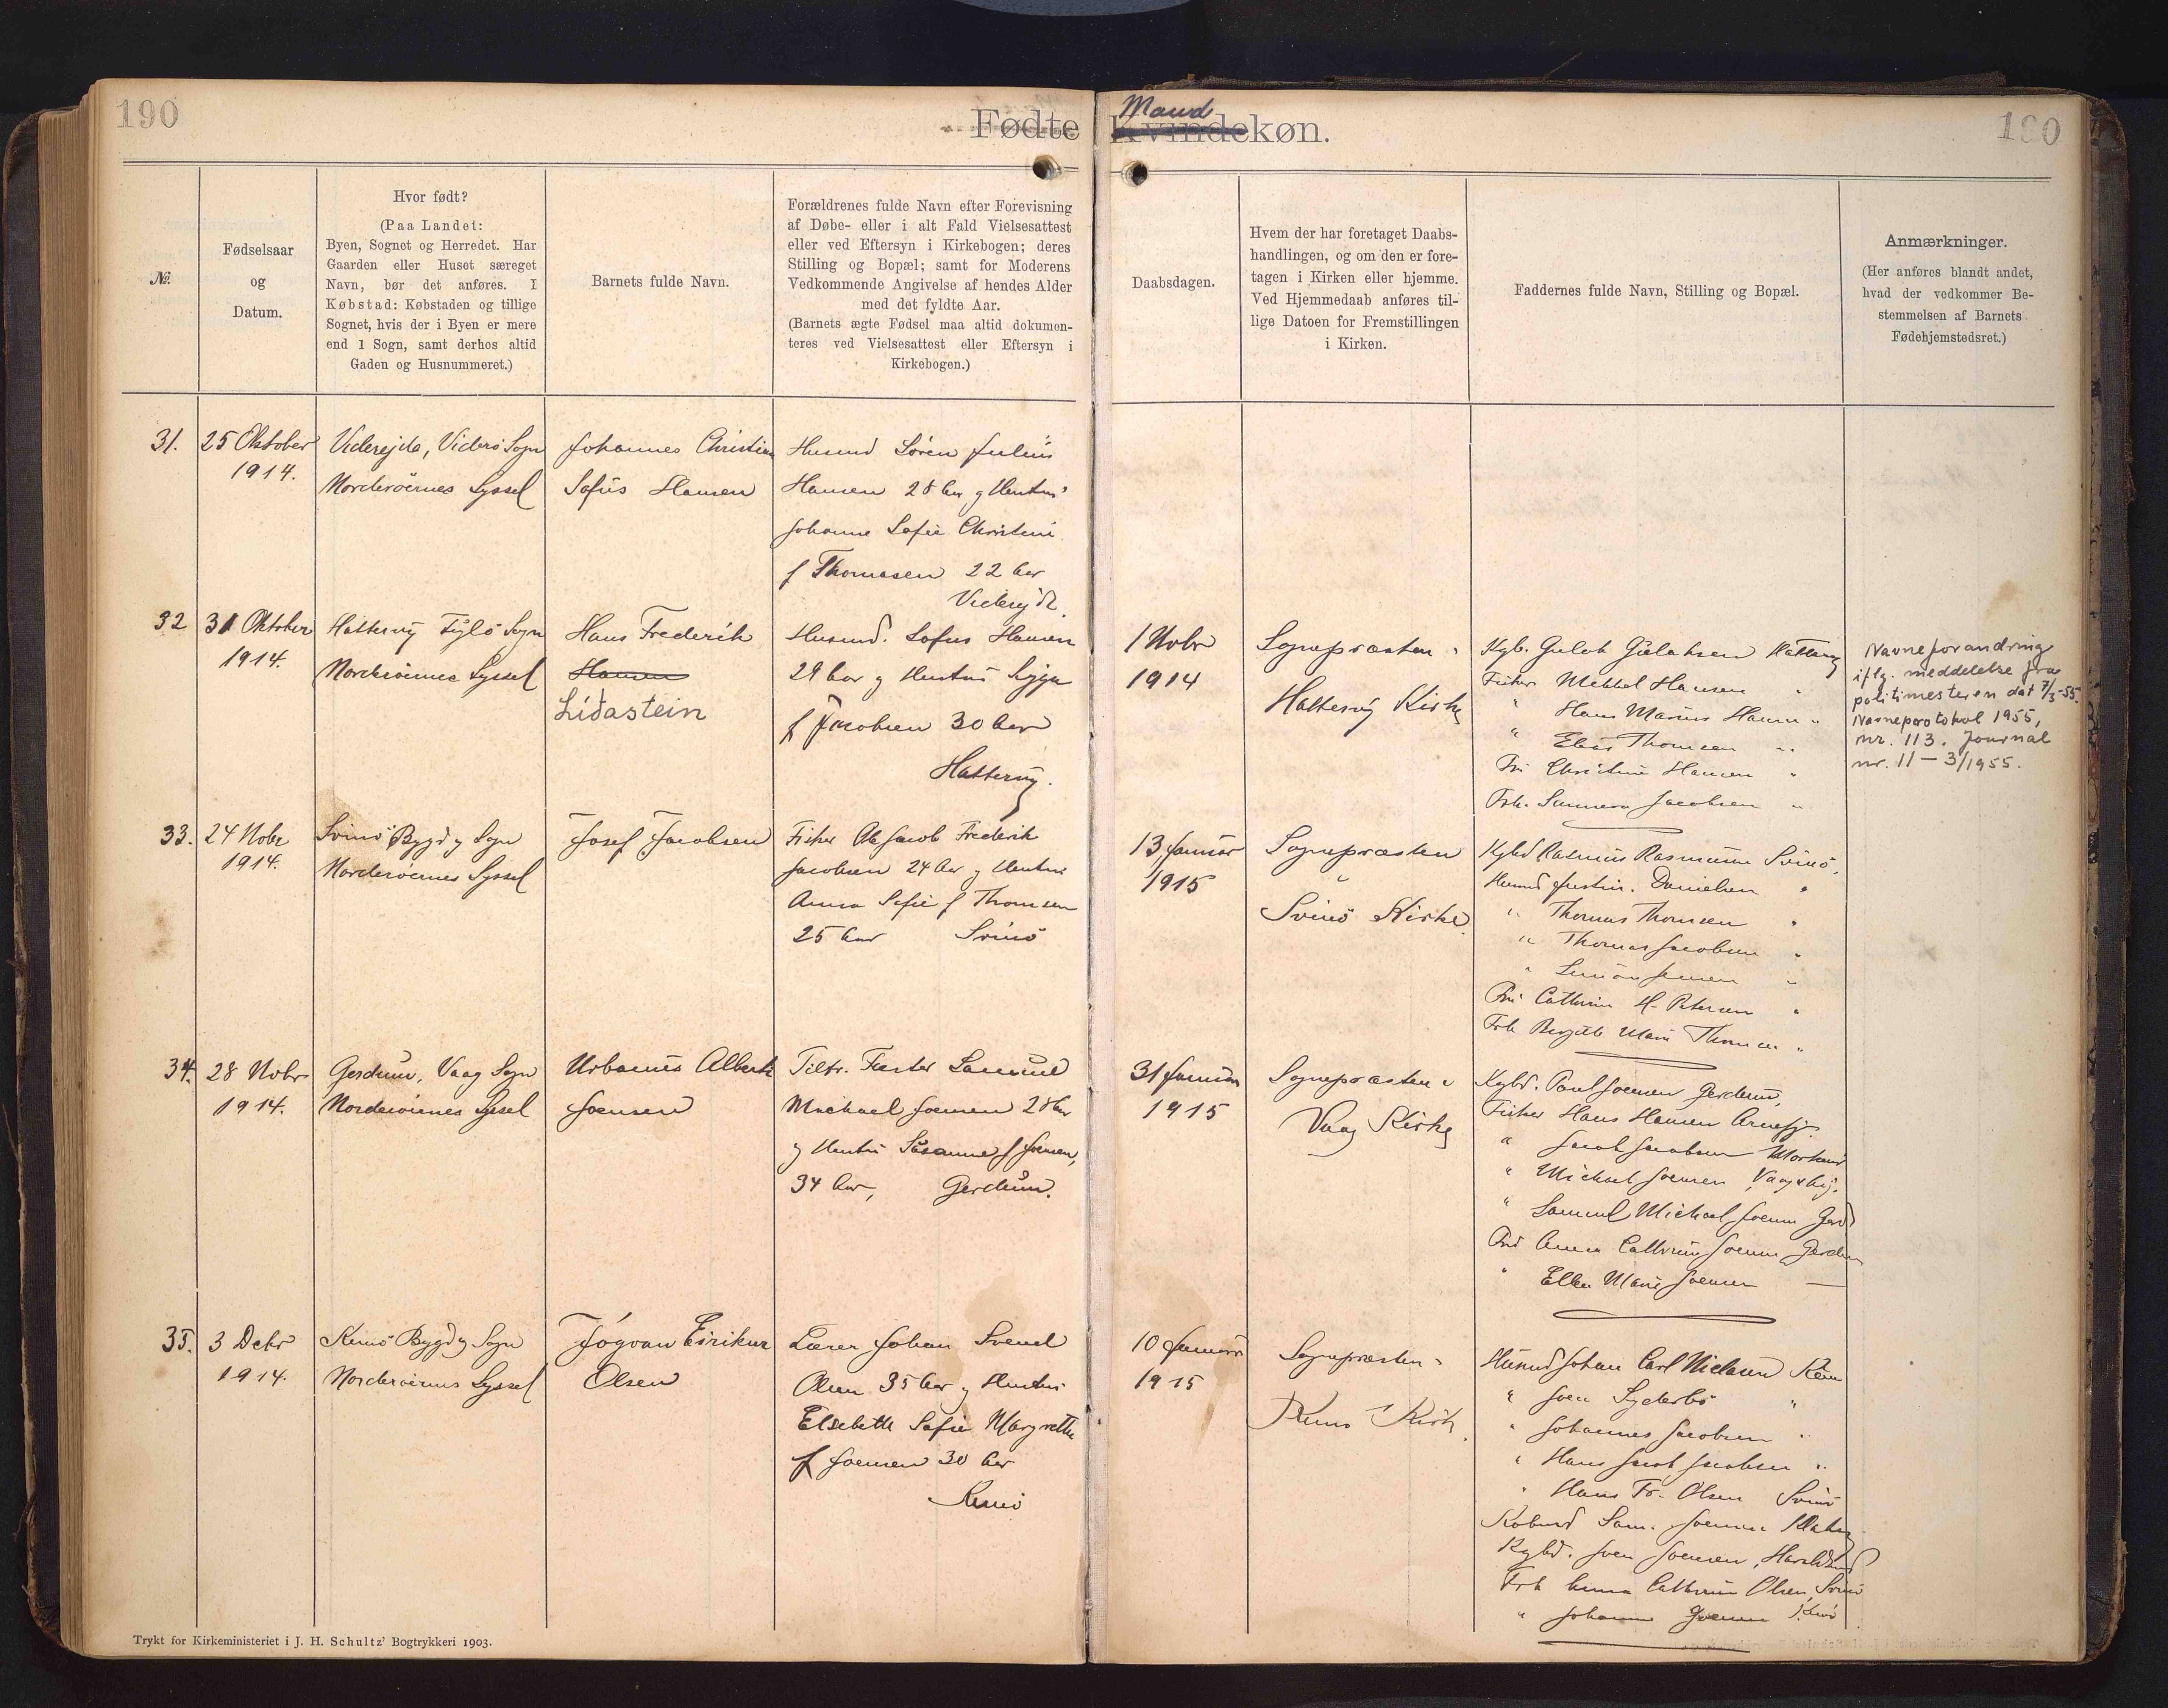 190
Fødte
Mand
Kvindekøn.
190
№.
Fødselsaar
og
Datum.
Hvor født?
(Paa Landet:
Byen, Sognet og Herredet. Har
Gaarden eller Huset særeget
Navn, bør det anføres. I
Købstad: Købstaden og tillige
Sognet, hvis der i Byen er mere
end 1 Sogn, samt derhos altid
Gaden og Husnummeret.)
Barnets fulde Navn.
Forældrenes fulde Navn efter Forevisning
af Døbe- eller i alt Fald Vielsesattest
eller ved Eftersyn i Kirkebogen; deres
Stilling og Bopæl; samt for Moderens
Vedkommende Angivelse af hendes Alder
med det fyldte Aar.
(Barnets ægte Fødsel maa altid dokumen-
teres ved Vielsesattest eller Eftersyn i
Kirkebogen.)
Daabsdagen.
Hvem der har foretaget Daabs-
handlingen, og om den er fore-
tagen i Kirken eller hjemme.
Ved Hjemmedaab anføres til-
lige Datoen for Fremstillingen
i Kirken.
Faddernes fulde Navn, Stilling og Bopæl.
Anmærkninger.
(Her anføres blandt andet,
hvad der vedkommer Be-
stemmelsen af Barnets
Fødehjemstedsret.)
31.
25 Oktober
1914.
Viderejde, Viderø Sogn
Norderøernes Syssel
Johannes Christian
Sofus Hansen
Husmd Søren Julius
Hansen 28 Aar og Hustru
Johanne Sofie Christine
f Thomasen 22 Aar
Viderejde.
32
31 Oktober
1914.
Hattervig Fuglø Sogn
Norderøernes Syssel
Hans Frederik
Hansen
Lídastein
Husmd. Sofus Hansen
29 Aar og Hustru
f Jacobsen 30 Aar
Hattervig.
1 Nobr
1914
Sognepræsten i
Hattervig Kirke
Kgb. Gulak Gulaksen Hattervig
Fisker Mikkel Hansen "
" Hans Marius Hansen "
" Elias Thomsen "
Fru Christine Hansen "
Frk. Sunneva Jacobsen "
Navneforandring
iflg. meddelelse fra
politimesteren dat 7/3-55.
Navneprotokol 1955,
nr. 113. Journal
nr. 11 – 3/1955.
33.
24 Nobr
1914.
Svinø Bygd og Sogn
Norderøernes Syssel
Josef Jacobsen
Fisker Ole Jacob Frederik
Jacobsen 24 Aar og Hustru
Anna Sofie f Thomsen
25 Aar Svinø
13 Januar
1915
Sognepræsten
i
Svinø Kirke.
Kgbd Rasmus Rasmussen Svinø.
Husmd Justin. Danielsen "
" Thomas Thomsen "
" Thomas Jacobsen "
" Simon "
Fru Cathrine H. Petersen "
Frk Marie Thomsen "
34.
28 Nobr
1914.
Gerdum, Vaag Sogn
Norderøernes Syssel
Urbanus Albert
Joensen
Tiltr. Fæster Samuel
Michael Joensen 28 Aar
og Hustru Susanne f Joensen,
34 Aar, Gerdum.
31 Januar
1915
Sognepræsten i
Vaag Kirke
Kgbd. Paul Joensen Gerdum,
Fisker Hans Hansen Arnefj.
" Jacob Jacobsen
" Michael Joensen
" Samuel Michael Joensen Gerd
Fru Anna Cathrine Joensen Gerdum
" Ellen Marie Joensen —
35.
3 Debr
1914.
Kunø Bygd og Sogn
Norderøernes Syssel
Jógvan Eirikur
Olsen
Lærer Johan Svend
Olsen 35 Aar og Hustru
Elsebeth Sofie Margrethe
f Joensen 30 Aar
Kunø
10 Januar
1915
Sognepræsten i
Kunø Kirke.
Husmd Johan Carl Nielsen Kunø
" Joen Syderbø "
" Johannes Jacobsen "
" Hans Jacob Jacobsen "
" Hans Fr. Olsen Svinø
Købmd Sam. Joensen
Kgbd. Joen Joensen, Haraldsund
Frk Anna Cathrine Olsen, Svinø
" Johanne Joensen Kunø
Trykt for Kirkeministeriet i J. H. Schultz' Bogtrykkeri 1903.